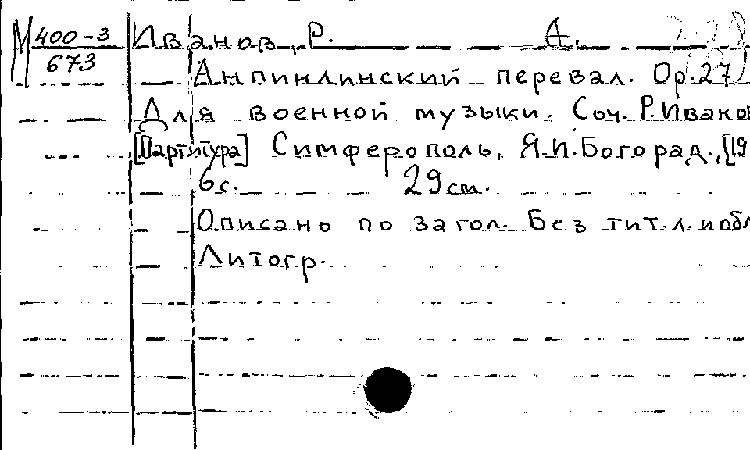 М 400-3 Иванов, Р. А.
673
Анпинлинский перевал. Ор. 27
Для военной музыки. Соч. Р. Иванов
[Партитура] Симферополь, Я.И. Богорад., [19
6 с. 29 см.
Описано по загол. Без тит. л. и обл
Литогр.